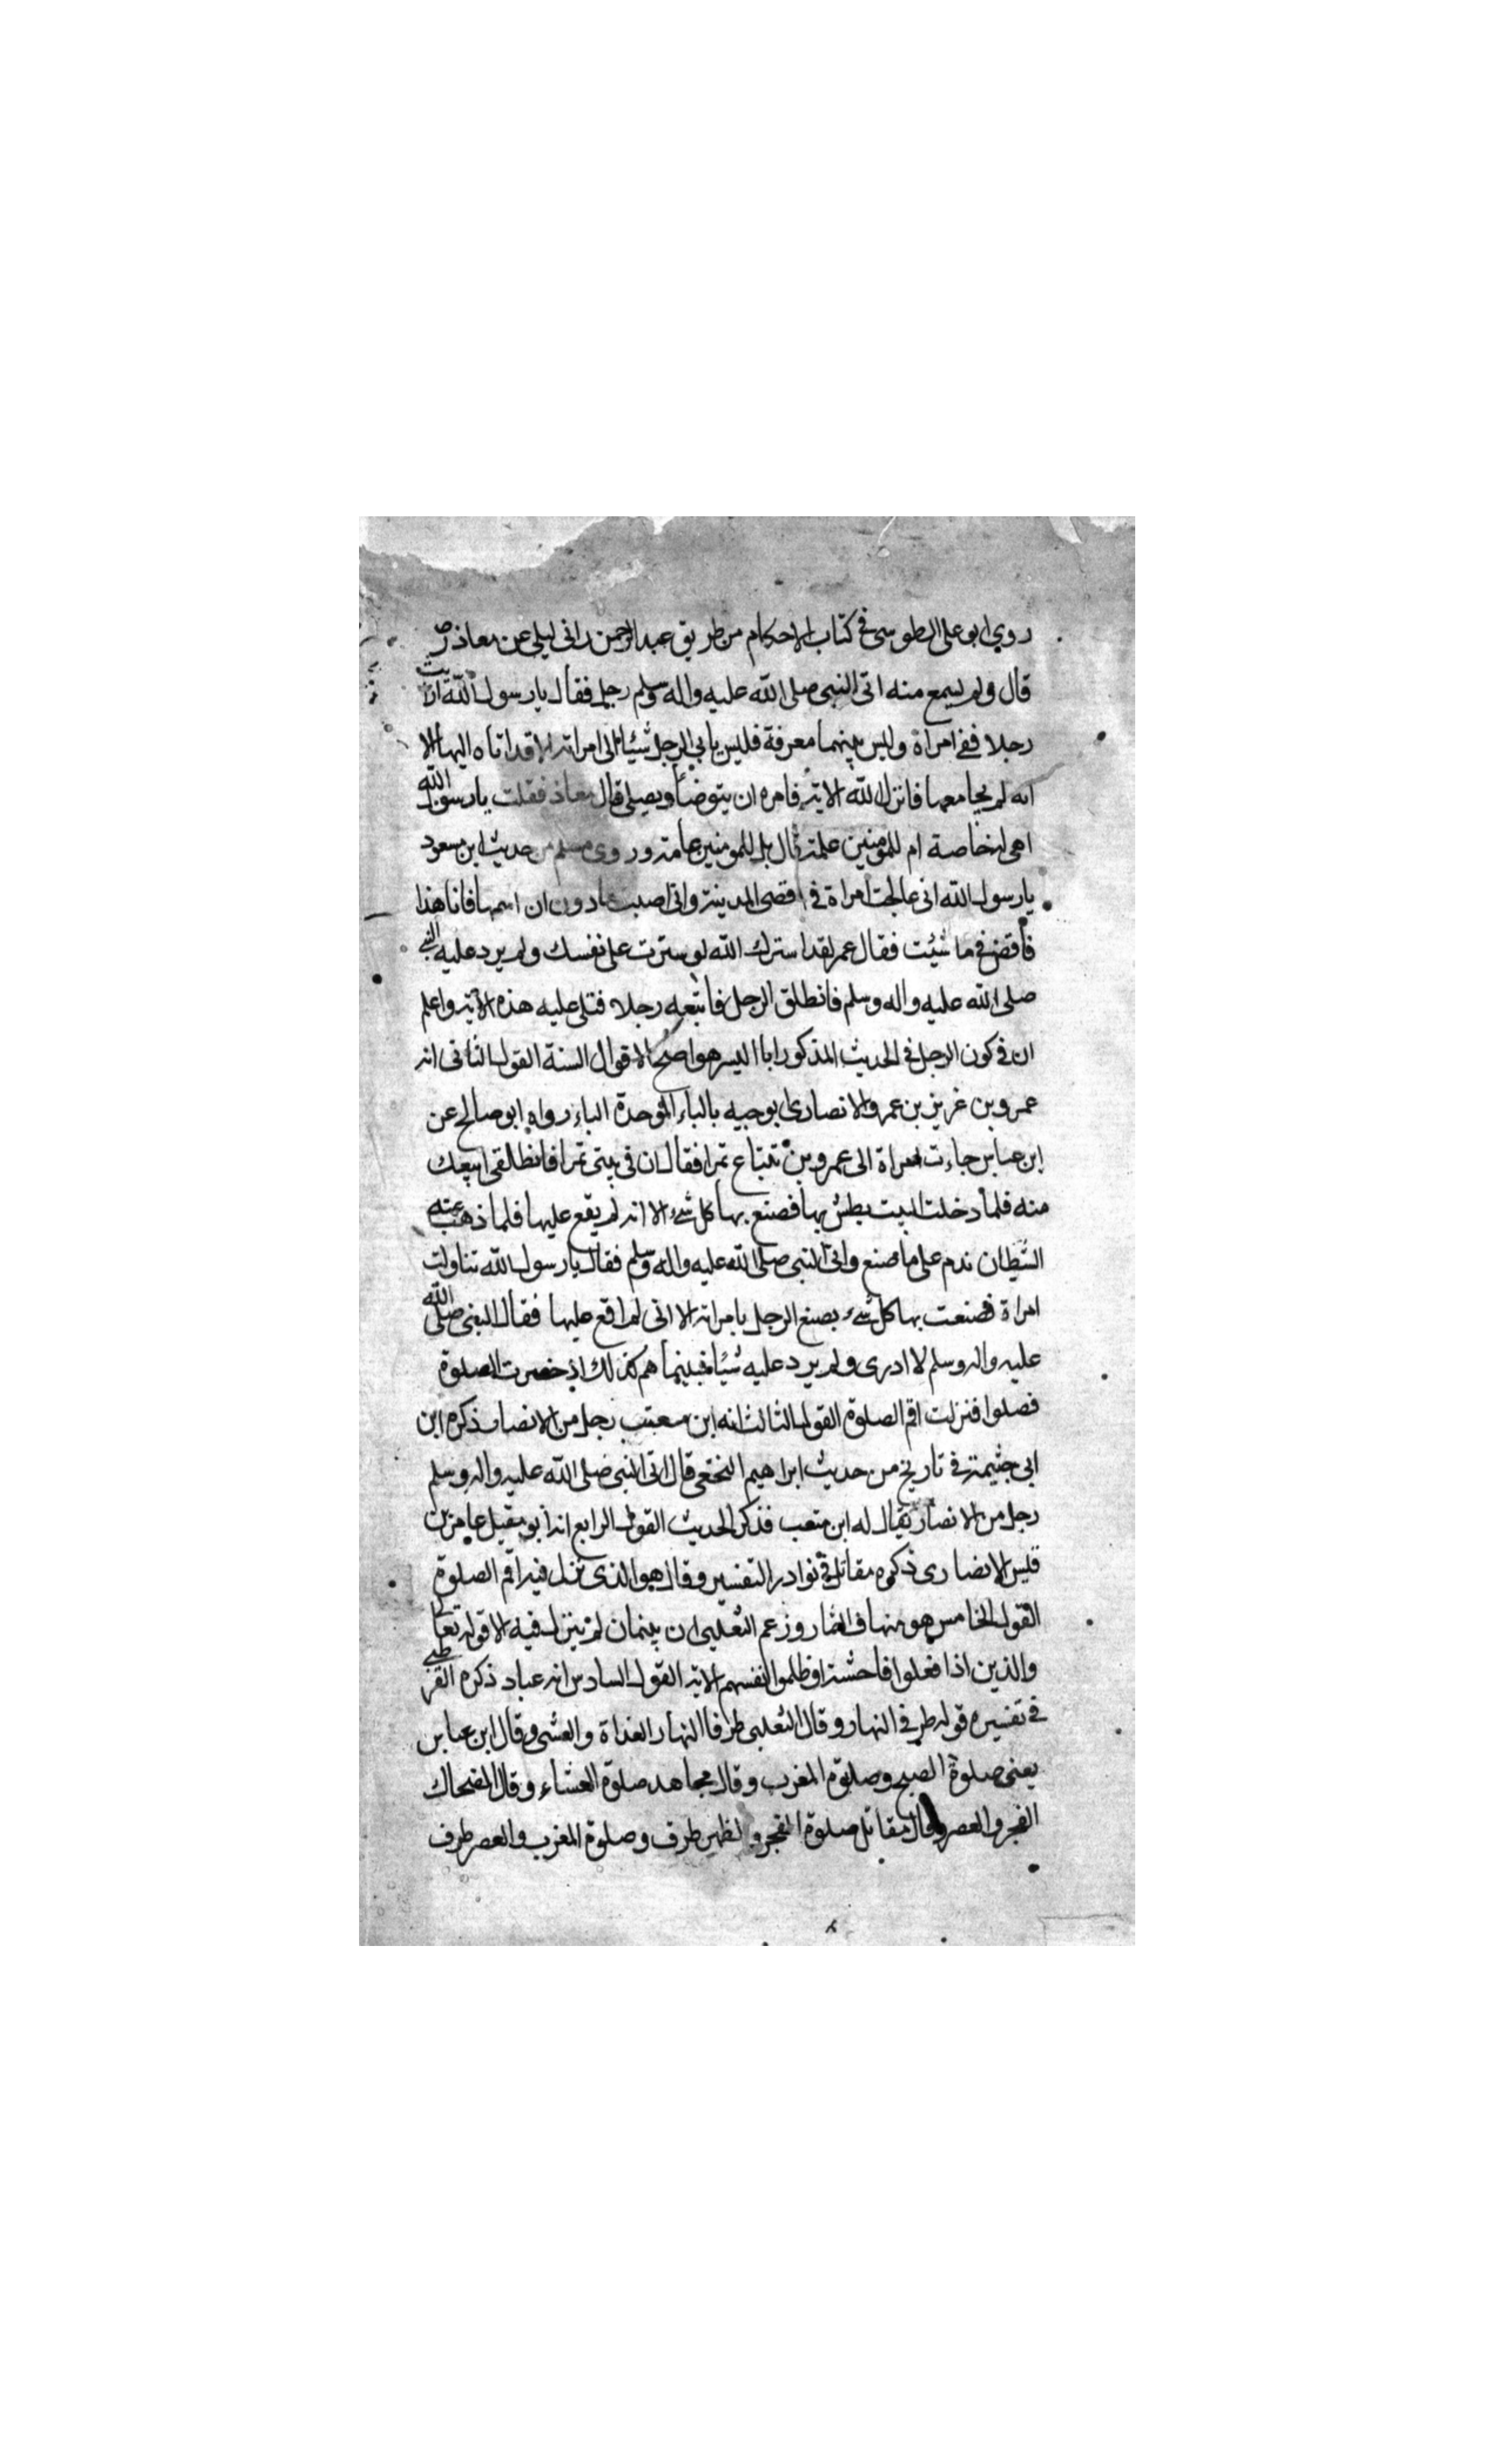 روي ابو على الطوسى فى كتاب الاحكام من طريق عبد الرحمن بن ابى ليلى عن معاذ رض
قال ولم يسمع منه اتى النبى صلى الله عليه واله وسلم رجل فقال يا رسول الله ارايت
رجلا لقى امراة وليس بينهما معرفة فليس ياتى الرجل شيئا الى امراته الا قد اتاه اليها الا
انه لم يجامعها فانزل الله الاية فامره ان يتوضأ ويصلى قال معاذ فقلت يا رسول الله
اهى له خاصة ام للمومنين عامة قال بل للمومنين عامة وروى مسلم من حديث ابن مسعود
يا رسول الله انى عالجت امراة فى اقصى المدينة وانى اصبت مادون ان امسها فانا هذا
فاقض فى ما شئت فقال عمر لقد سترك الله لو سترت على نفسك ولم يرد عليه النبى
صلى الله عليه واله وسلم فانطلق الرجل فاتبعه رجلا فتلى عليه هذه الاية واعلم
ان فى كون الرجل فى الحديث المذكور ابا اليسر هو اصح الاقوال الستة القول الثانى انه
عمرو بن غزية بن عمرو الانصارى ابو حبه بالباء الموحدة الباء رواه ابو صالح عن
ابن عباس جاءت امراة الى عمرو بن تبتاع تمرا فقال ان فى بيتى تمرا فانطلقى ابيعك
منه فلما دخلت البيت بطش بها فصنع بها كل شىء الا انه لم يقع عليها فلما ذهب عنه
الشيطان ندم على ما صنع واتى النبى صلى الله عليه واله وسلم فقال يا رسول الله تناولت
امراة فصنعت بها كل شىء يصنع الرجل بامراته الا انى لم اقع عليها فقال النبى صلى الله
عليه واله وسلم لا ادرى ولم يرد عليه شيئا فبينما هم كذلك اذ حضرت الصلوة
فصلوا فنزلت اقم الصلوة القول الثالث انه ابن معتب رجل من الانصار ذكره ابن
ابى خيثمة فى تاريخ من حديث ابراهيم النخعى قال اتى النبى صلى الله عليه واله وسلم
رجل من الانصار يقال له ابن متعب فذكر الحديث القول الرابع انه ابو مقيل عامر بن
قيس الانصارى ذكره مقاتل فى نوادر التفسير وقال هو الذى نزل فيه اقم الصلوة
القول الخامس هو نبهان التمار وزعم الثعلبى ان نبهان لم ينزل فيه الا قوله تعالى
والذين اذا فعلوا فاحشة او ظلموا انفسهم الاية القول السادس انه عباد ذكره القرطبى
فى تفسيره قوله طرفى النهار وقال الثعلبى طرفا النهار الغداة والعشى وقال ابن عباس
يعنى صلوة الصبح وصلوة المغرب وقال مجاهد صلوة العشاء وقال الضحاك
الفجر والعصر وقال مقاتل صلوة الفجر والظهر طرف وصلوة المغرب والعصر طرف